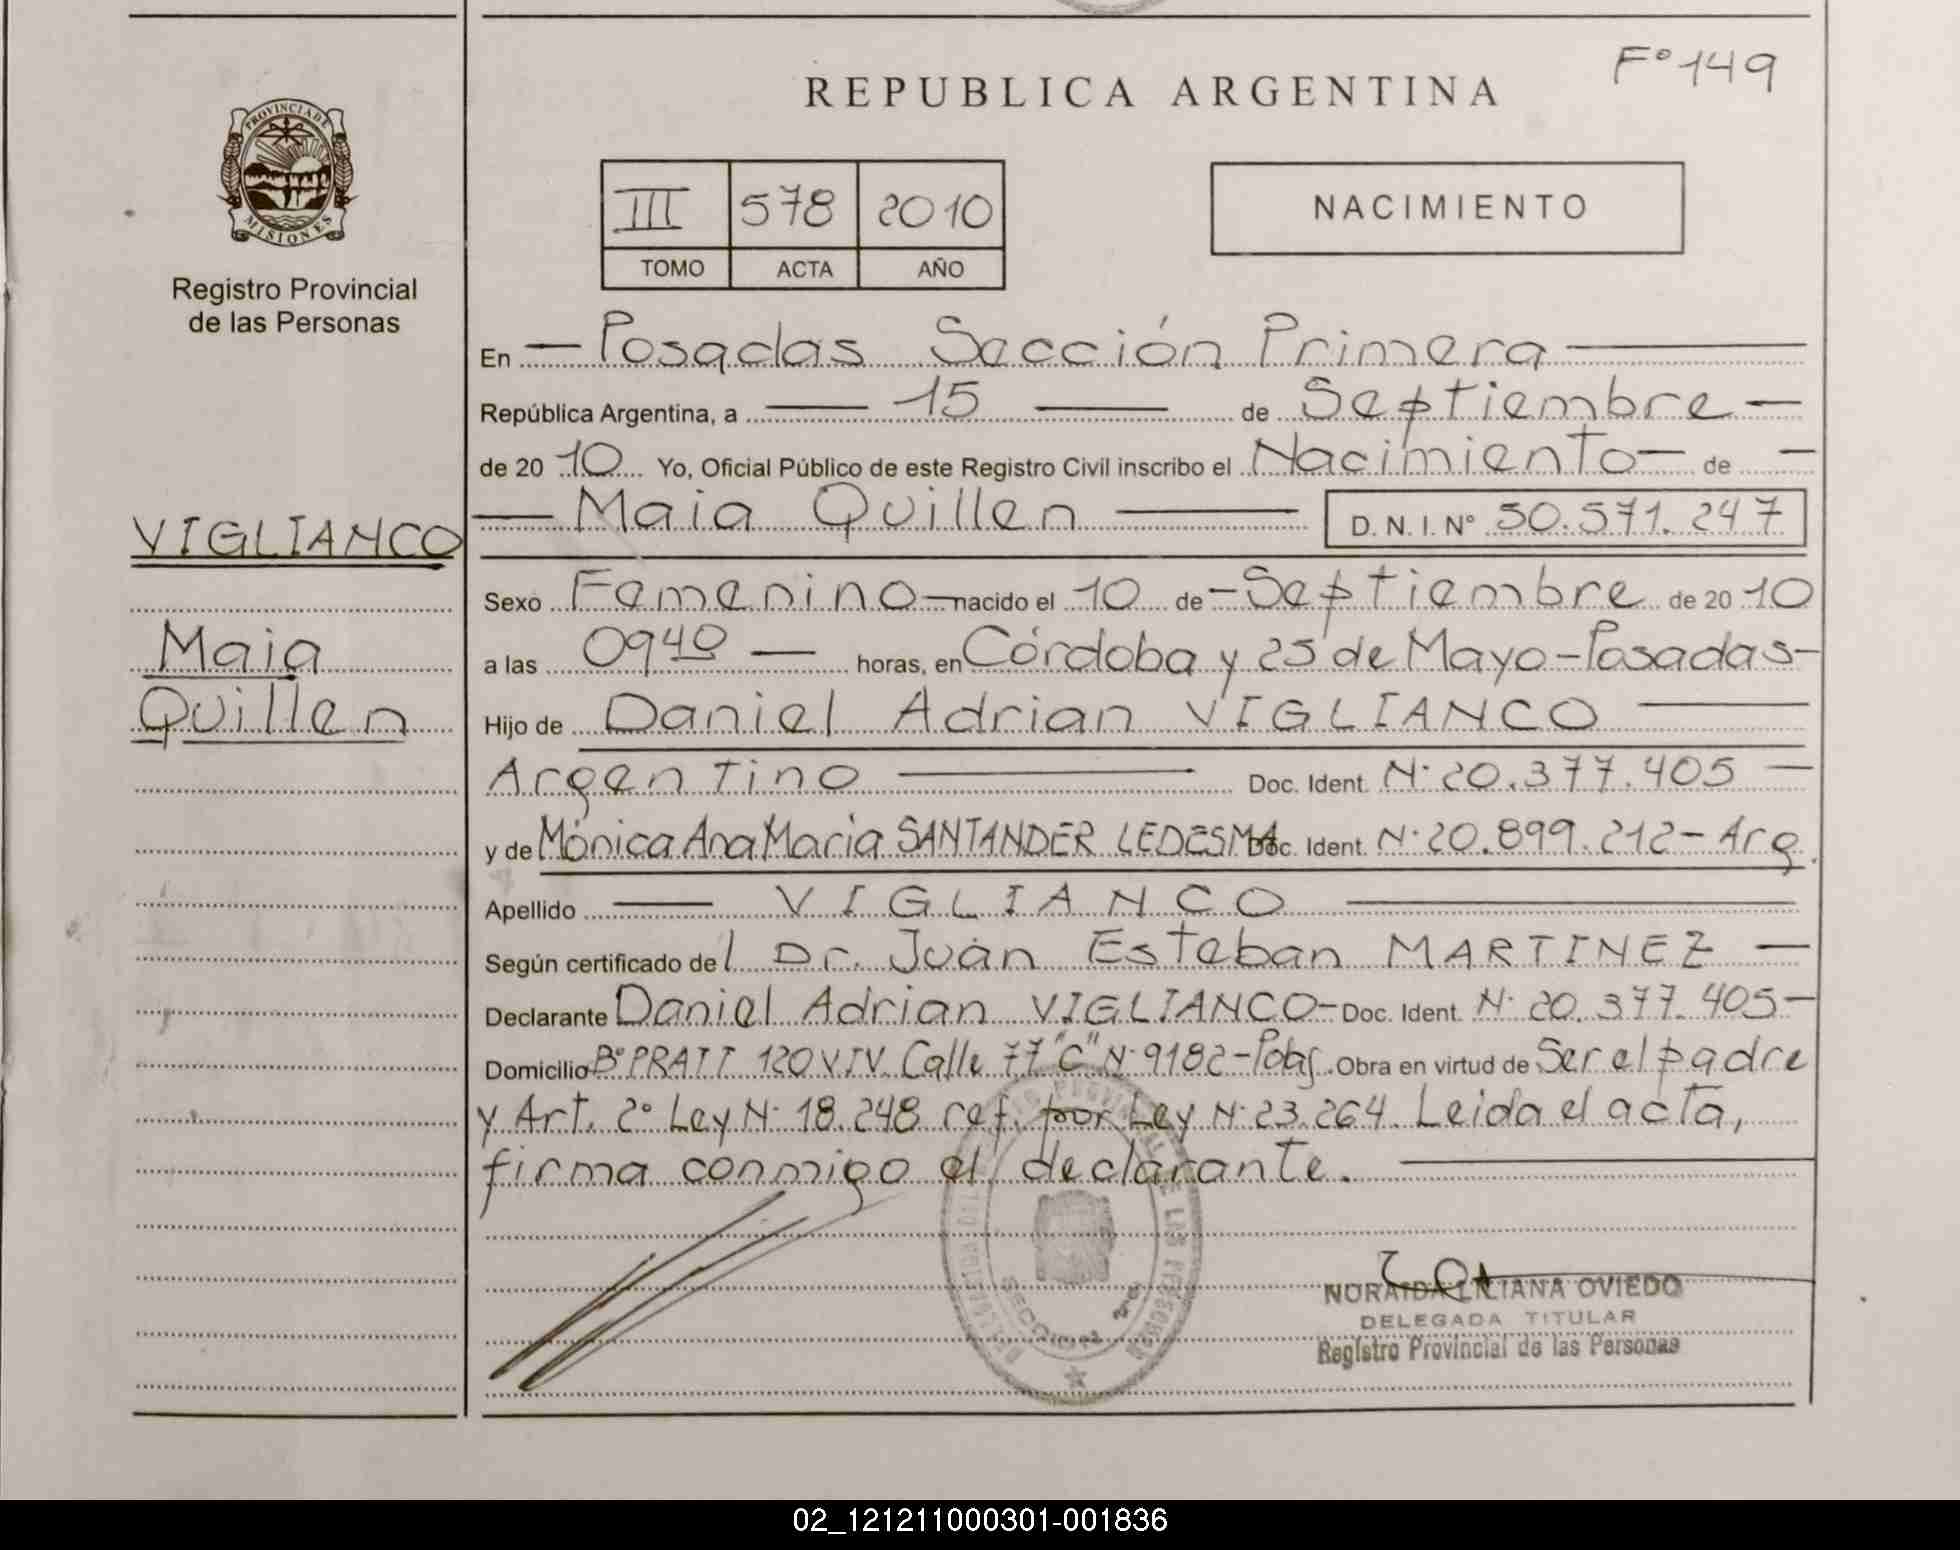 Fº 149
REPUBLICA ARGENTINA
PROVINCIA DE
MISIONES
Registro Provincial
de las Personas
III 578 2010
TOMO ACTA AÑO
NACIMIENTO
En — Posadas Sección Primera —
República Argentina, a — 15 — de Septiembre —
de 20 10 Yo, Oficial Público de este Registro Civil inscribo el Nacimiento — de —
— Maia Quillen — D. N. I. Nº 50.571.247
VIGLIANCO
Maia
Quillen
Sexo Femenino — nacido el 10 de — Septiembre de 20 10
a las 0940 — horas, en Córdoba y 25 de Mayo - Posadas -
Hijo de Daniel Adrian VIGLIANCO —
Argentino — Doc. Ident. Nº 20.377.405 —
y de Mónica Ana Maria SANTANDER LEDESMA Doc. Ident. Nº 20.899.212 - Arg.
Apellido — VIGLIANCO —
Según certificado del Dr. Juan Esteban MARTINEZ —
Declarante Daniel Adrian VIGLIANCO - Doc. Ident. Nº 20.377.405 -
Domicilio Bº PRATT 120 VIV. Calle 77 "C" Nº 9182 - Pdas. Obra en virtud de Ser el padre
y Art. 2º Ley Nº 18.248 ref. por Ley Nº 23.264. Leida el acta,
firma conmigo el declarante. —
SECCION
NORAIDA LILIANA OVIEDO
DELEGADA TITULAR
Registro Provincial de las Personas
02_121211000301-001836